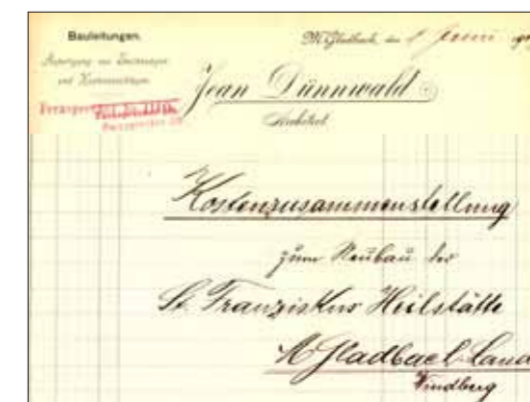 Bauleitungen.
Anfertigung von Zeichnungen
und Kostenanschlägen.
M.Gladbach, den 1. Juni
Jean Dünnwald
Architect.
Kostenzusammenstellung
zum Neubau der
St. Franziskus Heilstätte
M Gladbach-Land
Windberg